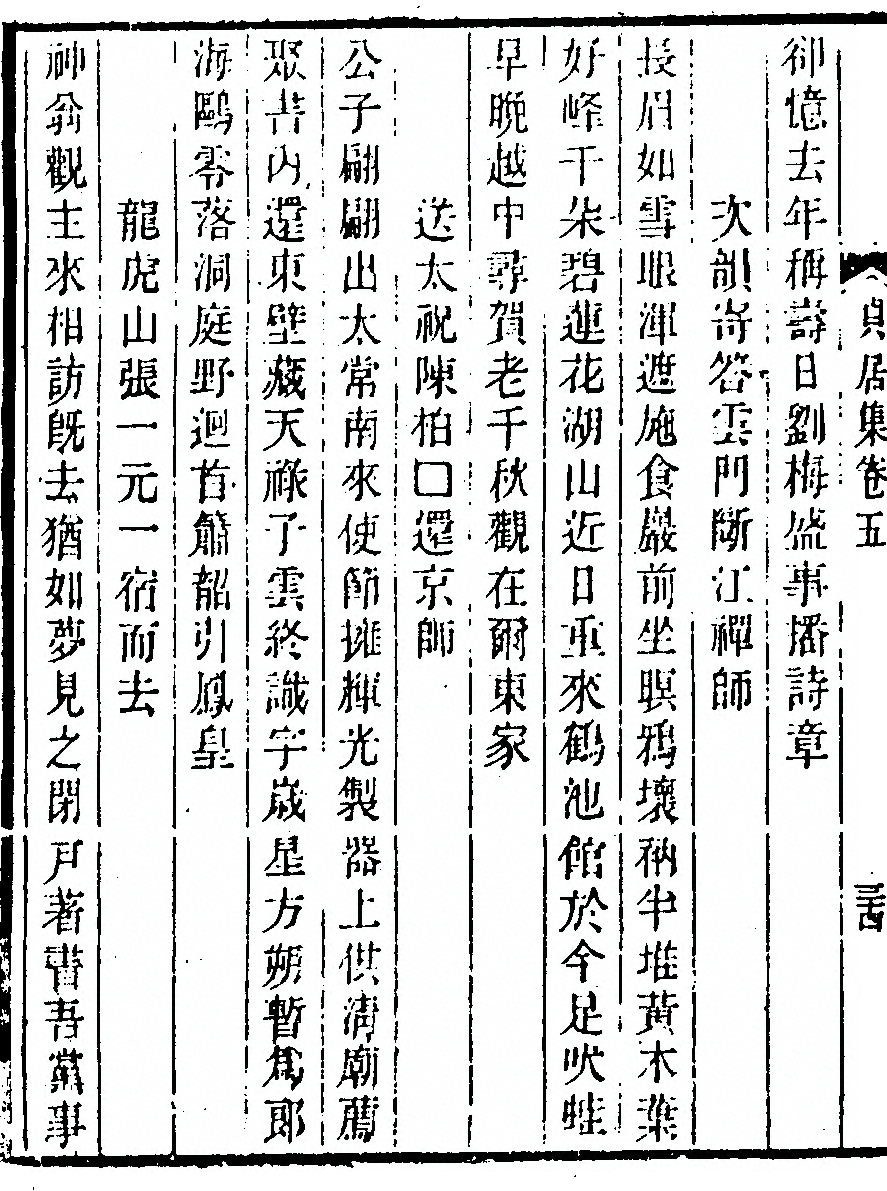 貞居集卷五
三十四
卻憶去年稱壽日劉梅盛事播詩章
次韻寄答雲門斷江禪師
長眉如雪眼渾遮施食巖前坐暝鴉壞衲半堆黃木葉
好峰千朵碧蓮花湖山近日重來鶴池館於今足吠蛙
早晚越中尋賀老千秋觀在爾東家
送太祝陳柏□還京師
公子翩翩出太常南來使節擁輝光製器上供清廟薦
聚書內還東壁藏天祿子雲終識字歲星方朔暫爲郎
海鷗零落洞庭野迴首簫韶引鳳皇
龍虎山張一元一宿而去
神翁觀主來相訪旣去猶如夢見之閉戶著書吾黨事